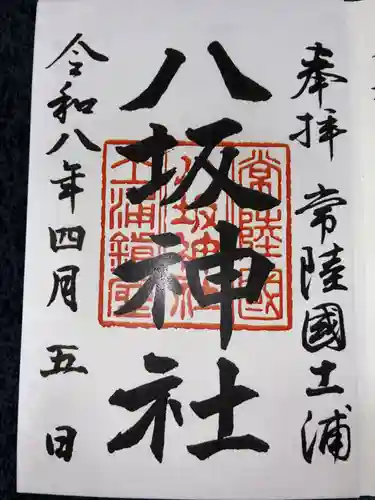 奉拝 常陸國土浦
八坂神社
常陸國
八坂神社
土浦鎮
令和八年四月五日